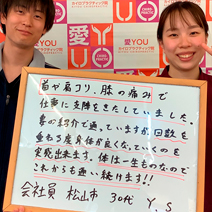 愛YOU
カイロプラクティック院
愛YOU
首や肩コリ、膝の痛みで
仕事に支障をきたしていました。
妻の紹介で通っていますが、回数を
重ねる度身体が良くなっていくのを
実感出来ます。体は一生ものなので
これからも通い続けます!!
会社員 松山市 30代 Y.S